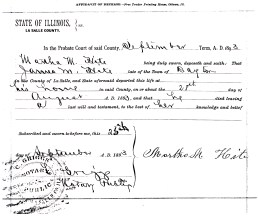 AFFIDAVIT OF DECEASE.—Free Trader Printing House, Ottawa, Ill.
STATE OF ILLINOIS,
LA SALLE COUNTY.
In the Probate Court of said County, September Term, A. D. 1883
Martha M. Hite being duly sworn, deposeth and saith: That
James M. Hite late of the Town of Dayton
in the County of La Salle, and State aforesaid departed this life at
his home in said County, on or about the day
of August A. D. 1883, and that he died leaving
a last will and testament, to the best of her knowledge and belief
Subscribed and sworn to before me, this 25th
day of September A. D. 1883
Martha M Hite
Notary Public